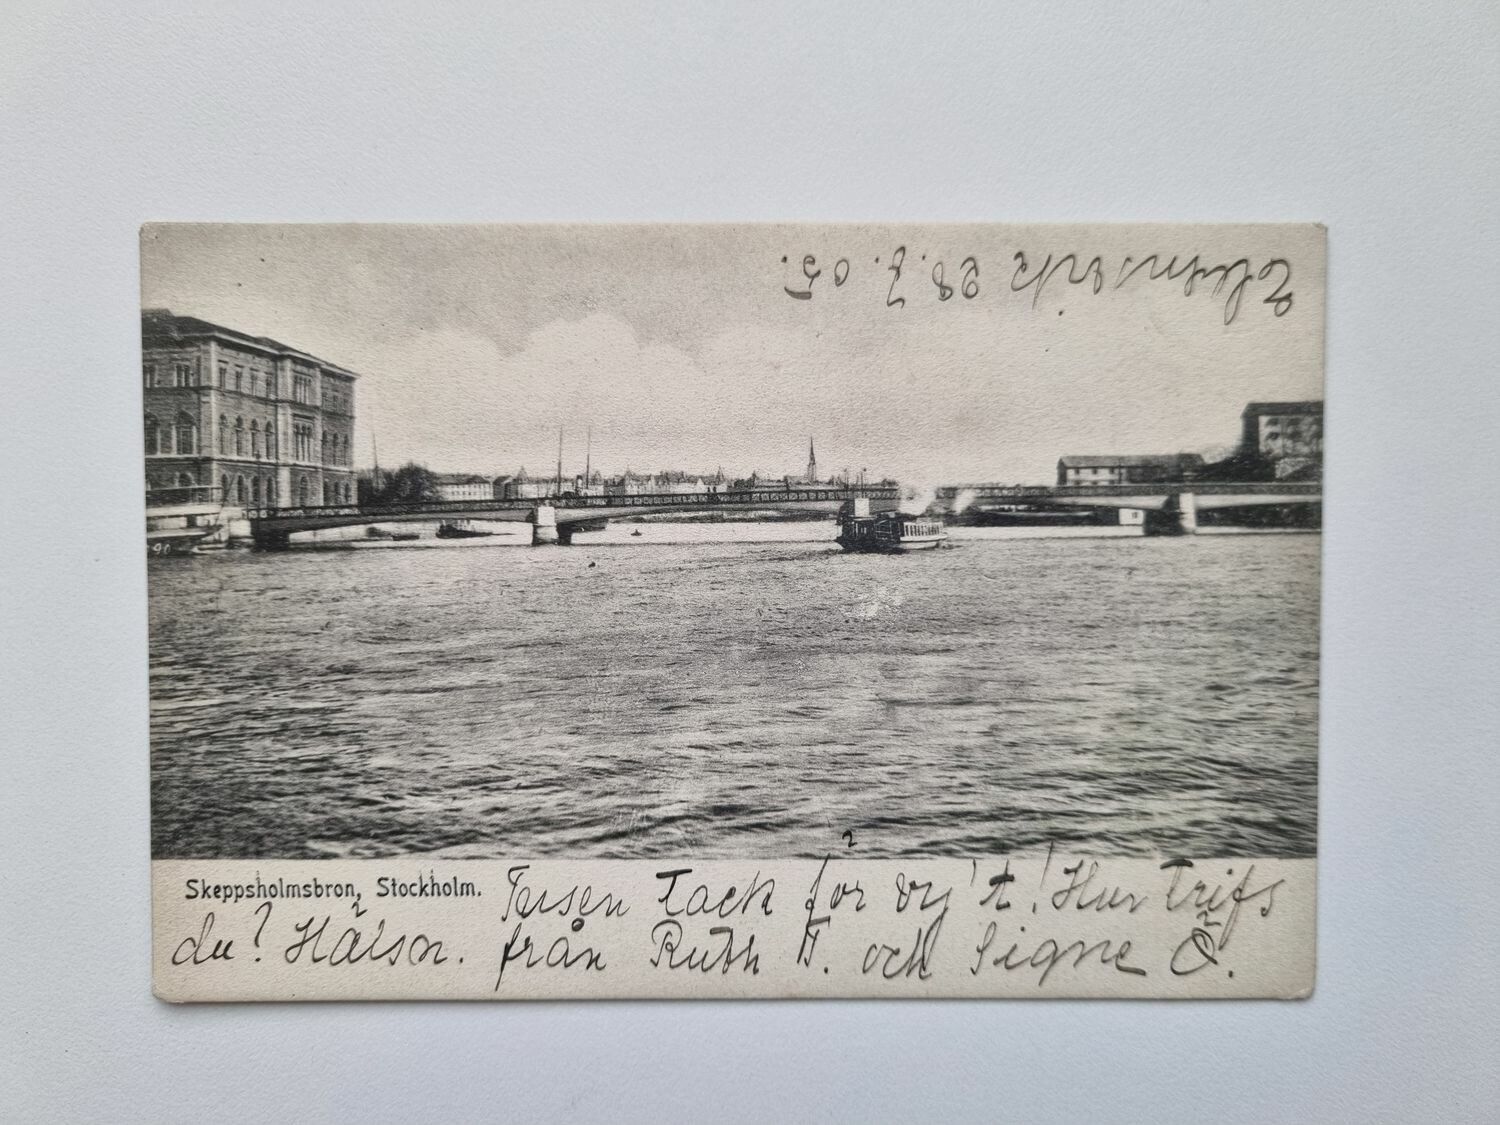 28. 7. 05.
Skeppsholmsbron, Stockholm. Tusen Tack för vy't! Hur Trifs
du? Hälsn. från Ruth T. och Signe Ö.
90